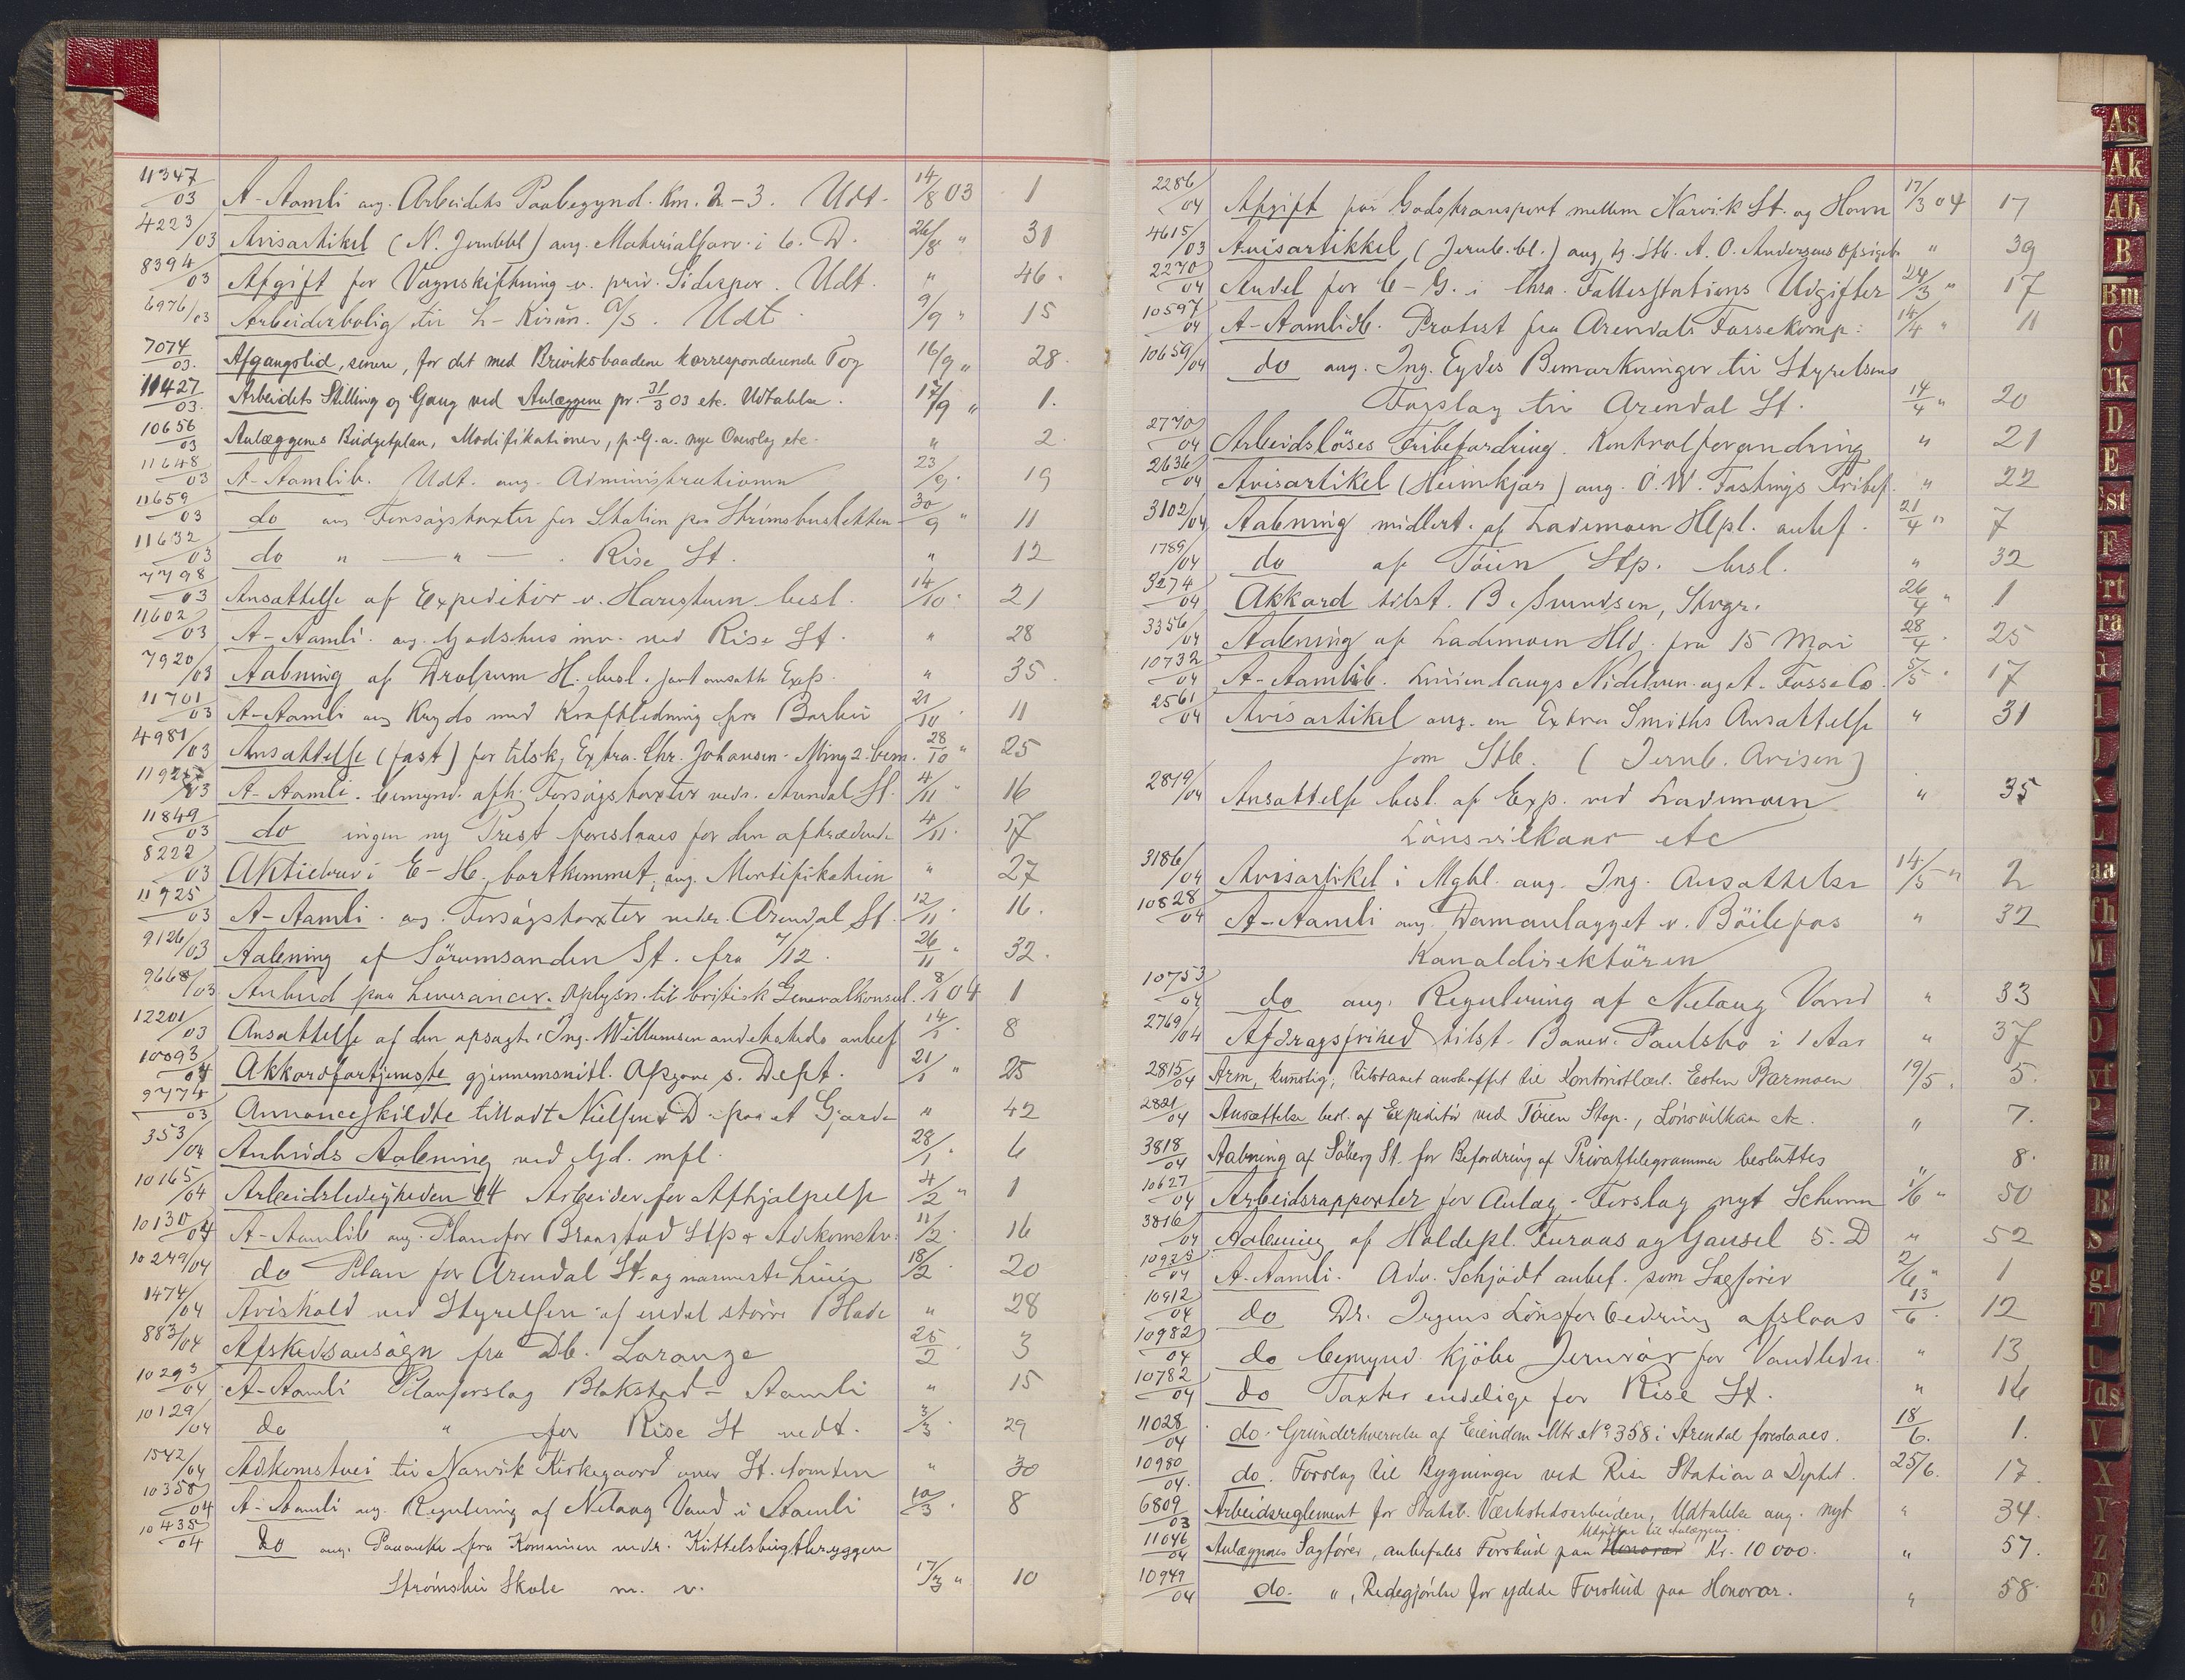 11347/03 A-Aamli ang. Arbeidets Paabegynd. Km. 2-3. Udt. 14/8 03 1
4223/03 Avisartikel (N. Jernbbl) ang. Materialforv. i 6. D. 26/8 " 31
8394/03 Afgift for Vognskiftning v. priv. Sidespor. Udt. " 46.
6976/03 Arbeiderbolig til L-Kirun. A/S. Udt. 9/9 " 15
7074/03. Afgangstid, senere, for det med Breviksbaadene korresponderende Tog 16/9 " 28.
11427/03. Arbeidets Stilling og Gang ved Anlæggene pr. 31/3 03 etc. Udtalelse. 17/9 " 1.
10656/03 Anlæggenes Budgetplan, Modifikationer, p. G. a. nye Overslag etc. " 2.
11648/03 A-Aamlib. Udt. ang. Administrationen 23/9. 19
11659/03 do ang Forsøgstaxter for Station paa Strømsbusletten 30/9 " 11
11632/03 do " — " — . Rise St. " 12
7798/03 Ansættelse af Expeditør v. Harestuen besl. 14/10. 21
11602/03 A-Aamli. ang. Godshus mv. ved Rise St. " 28
7920/03 Aabning af Drolsum H. besl. samt ansatte Exp. " 35.
11701/03 A-Aamli ang Kryds med Kraftledning fra Barbu 21/10 11
4981/03 Ansættelse (fast) for tilsk. Extra. Chr. Johansen-Ming 2. bem. 28/10 " 25
A-Aamli. bemynd. afh. Forsøgstaxter vedr. Arendal St. 4/11 " 16
11849/03 do ingen ny Præst foreslaaes for den aftrædende 4/11. 17
8222/03 Aktiebrev i E-H. bortkommet, ang. Mortifikation " 27
11925/03 A-Aamli. ang. Forsøgstaxter vedr. Arendal St. 12/11. 16.
9126/03 Aabning af Sørumsanden St. fra 7/12. 26/11 " 32.
9668/03 Anbud paa Leverancer. Oplysn. til britisk Generalkonsul. 8/1 04 1
12201/03 Ansættelse af den opsagte Ing. Willumsen andetsteds anbef 14/1. 8
10093/04 Akkordfortjeneste gjennemsnitl. Opgave s. Dept. 21/1 " 25
9774/03 Annonceskildte tilladt Nielsen & D. paa et Gjærde " 42
353/04 Anbuds Aabning ved Gd. mfl. 28/1 " 6
10165/04 Arbeidsledigheden 04 Arbeider for Afhjælpelse 4/2 " 1
10130/04 A-Aamlib ang. Plan for Braastad Stp & Adkomstv. 11/2. 16
10249/04 do Plan for Arendal St. og nærmeste Linie 18/2. 20
1474/04 Avishold ved Styrelsen af endel større Blade " 28
883/04 Afskedsansøgn fra Db. Lorange 25/2. 3
10293/04 A-Aamli Planforslag Blakstad - Aamli " 15
10129/04 do " for Rise St vedt. 3/3. 29
1542/04 Adkomstvei til Narvik Kirkegaard over St. Tomten " 30
10358/04 A-Aamli ang. Regulering af Nelaug Vand i Aamli 10/3. 8
10435/04 do ang. Paaanke fra Kommunen vedr. Kittelsbugtbryggen
Strømsbu Skole m. v. 17/3 " 10
2286/04 Afgift for Godstransport mellem Narvik St. og Havn 17/3 04 17
4615/03 Avisartikkel (Jernb. bl.) ang. tj. Stb. A. O. Andersens Opsigelse " 39
2270/04 Andel for 6-G. i Chra. Fællesstations Udgifter 24/3 " 17
10597/04 A-Aamlib. Protest fra Arendals Fossekomp: 14/4 " 11
10659/04 do ang. Ing. Eydes Bemærkninger til Styrelsens
Forslag til Arendal St. 14/4 " 20
2770/04 Arbeidsløses Fribefordring. Kontrolforandring " 21
2636/04 Avisartikel (Heimkjær) ang. O. W. Fastings Fribef. " 22
3102/04 Aabning midlert. af Lademoen Hlpl. anbef. 21/4 " 7
1789/04 do af Tøien Stp. besl. " 32
3274/04 Akkord tilst. B. Svendsen, Stvgr. 26/4 " 1
3356/04 Aabning af Lademoen Hld. fra 15 Mai 28/4. 25
10732/04 A-Aamlib. Linien langs Nidelven. og A. Fosse Co. 5/5 " 17
2561/04 Avisartikel ang. en Extra Smiths Ansættelse " 31
som Stb. (Jernb. Avisen)
2819/04 Ansættelse besl. af Exp. ved Lademoen " 35
Lønsvilkaar etc
3186/04 Avisartikel i Mgbl. ang. Ing. Ansættelse 14/5 " 2
10828/04 A-Aamli ang. Damanlægget v. Bøilefos " 32
Kanaldirektøren
10753/04 do ang. Regulering af Nelaug Vand " 33
2769/04 Afdragsfrihed tilst. Banev. Paulsbo i 1 Aar " 37
2815/04 Arm, kunstig, tilstaaet anskaffet til Kontristlærl. Esten Barmoen 19/5. 5.
2821/04 Ansættelse besl. af Expeditør ved Tøien Stop., Lønsvilkaar etc. " 7.
3818/04 Aabning af Søberg St. for Befordring af Privattelegrammer besluttes 8.
10627/04 Arbeidsrapporter for Anlæg - Forslag nyt Schema 1/6 " 50
3816/04 Aabning af Holdepl. Furaas og Gausel 5. D " 52
10925/04 A-Aamli. Adv. Schjødt anbef. som Sagfører 2/6 " 1
10912/04 do Dr. Irgens Lønsforbedring afslaaes 13/6. 12
10982/04 do bemynd. kjøbe Jernrør for Vandledn. " 13
10782/04 do Taxter endelige for Rise St. " 14
11028/04 do. Grunderhvervelse af Eiendom Mtr. No 358 i Arendal foreslaaes. 18/6. 1.
10980/04. do. Forslag til Bygninger ved Rise Station a Deptet. 25/6. 17.
6809/03 Arbeidsreglement for Statsb. Værkstedsarbeidere, Udtalelse ang. nyt " 34.
Udgifter til Anlæggene.
11046/04 Anlæggenes Sagfører, anbefales Forskud paa Honorar Kr. 10 000. " 57.
10949/04 do. ", Redegjørelse for ydede Forskud paa Honorar. " 58.
As
Ak
Ab
B
Bm
C
Ck
D
E
Est
F
Frt
G
H
J
K
L
M
N
O
P
R
S
Sgl
T
U
Uds
V
X
Y
Z
Æ
Ø